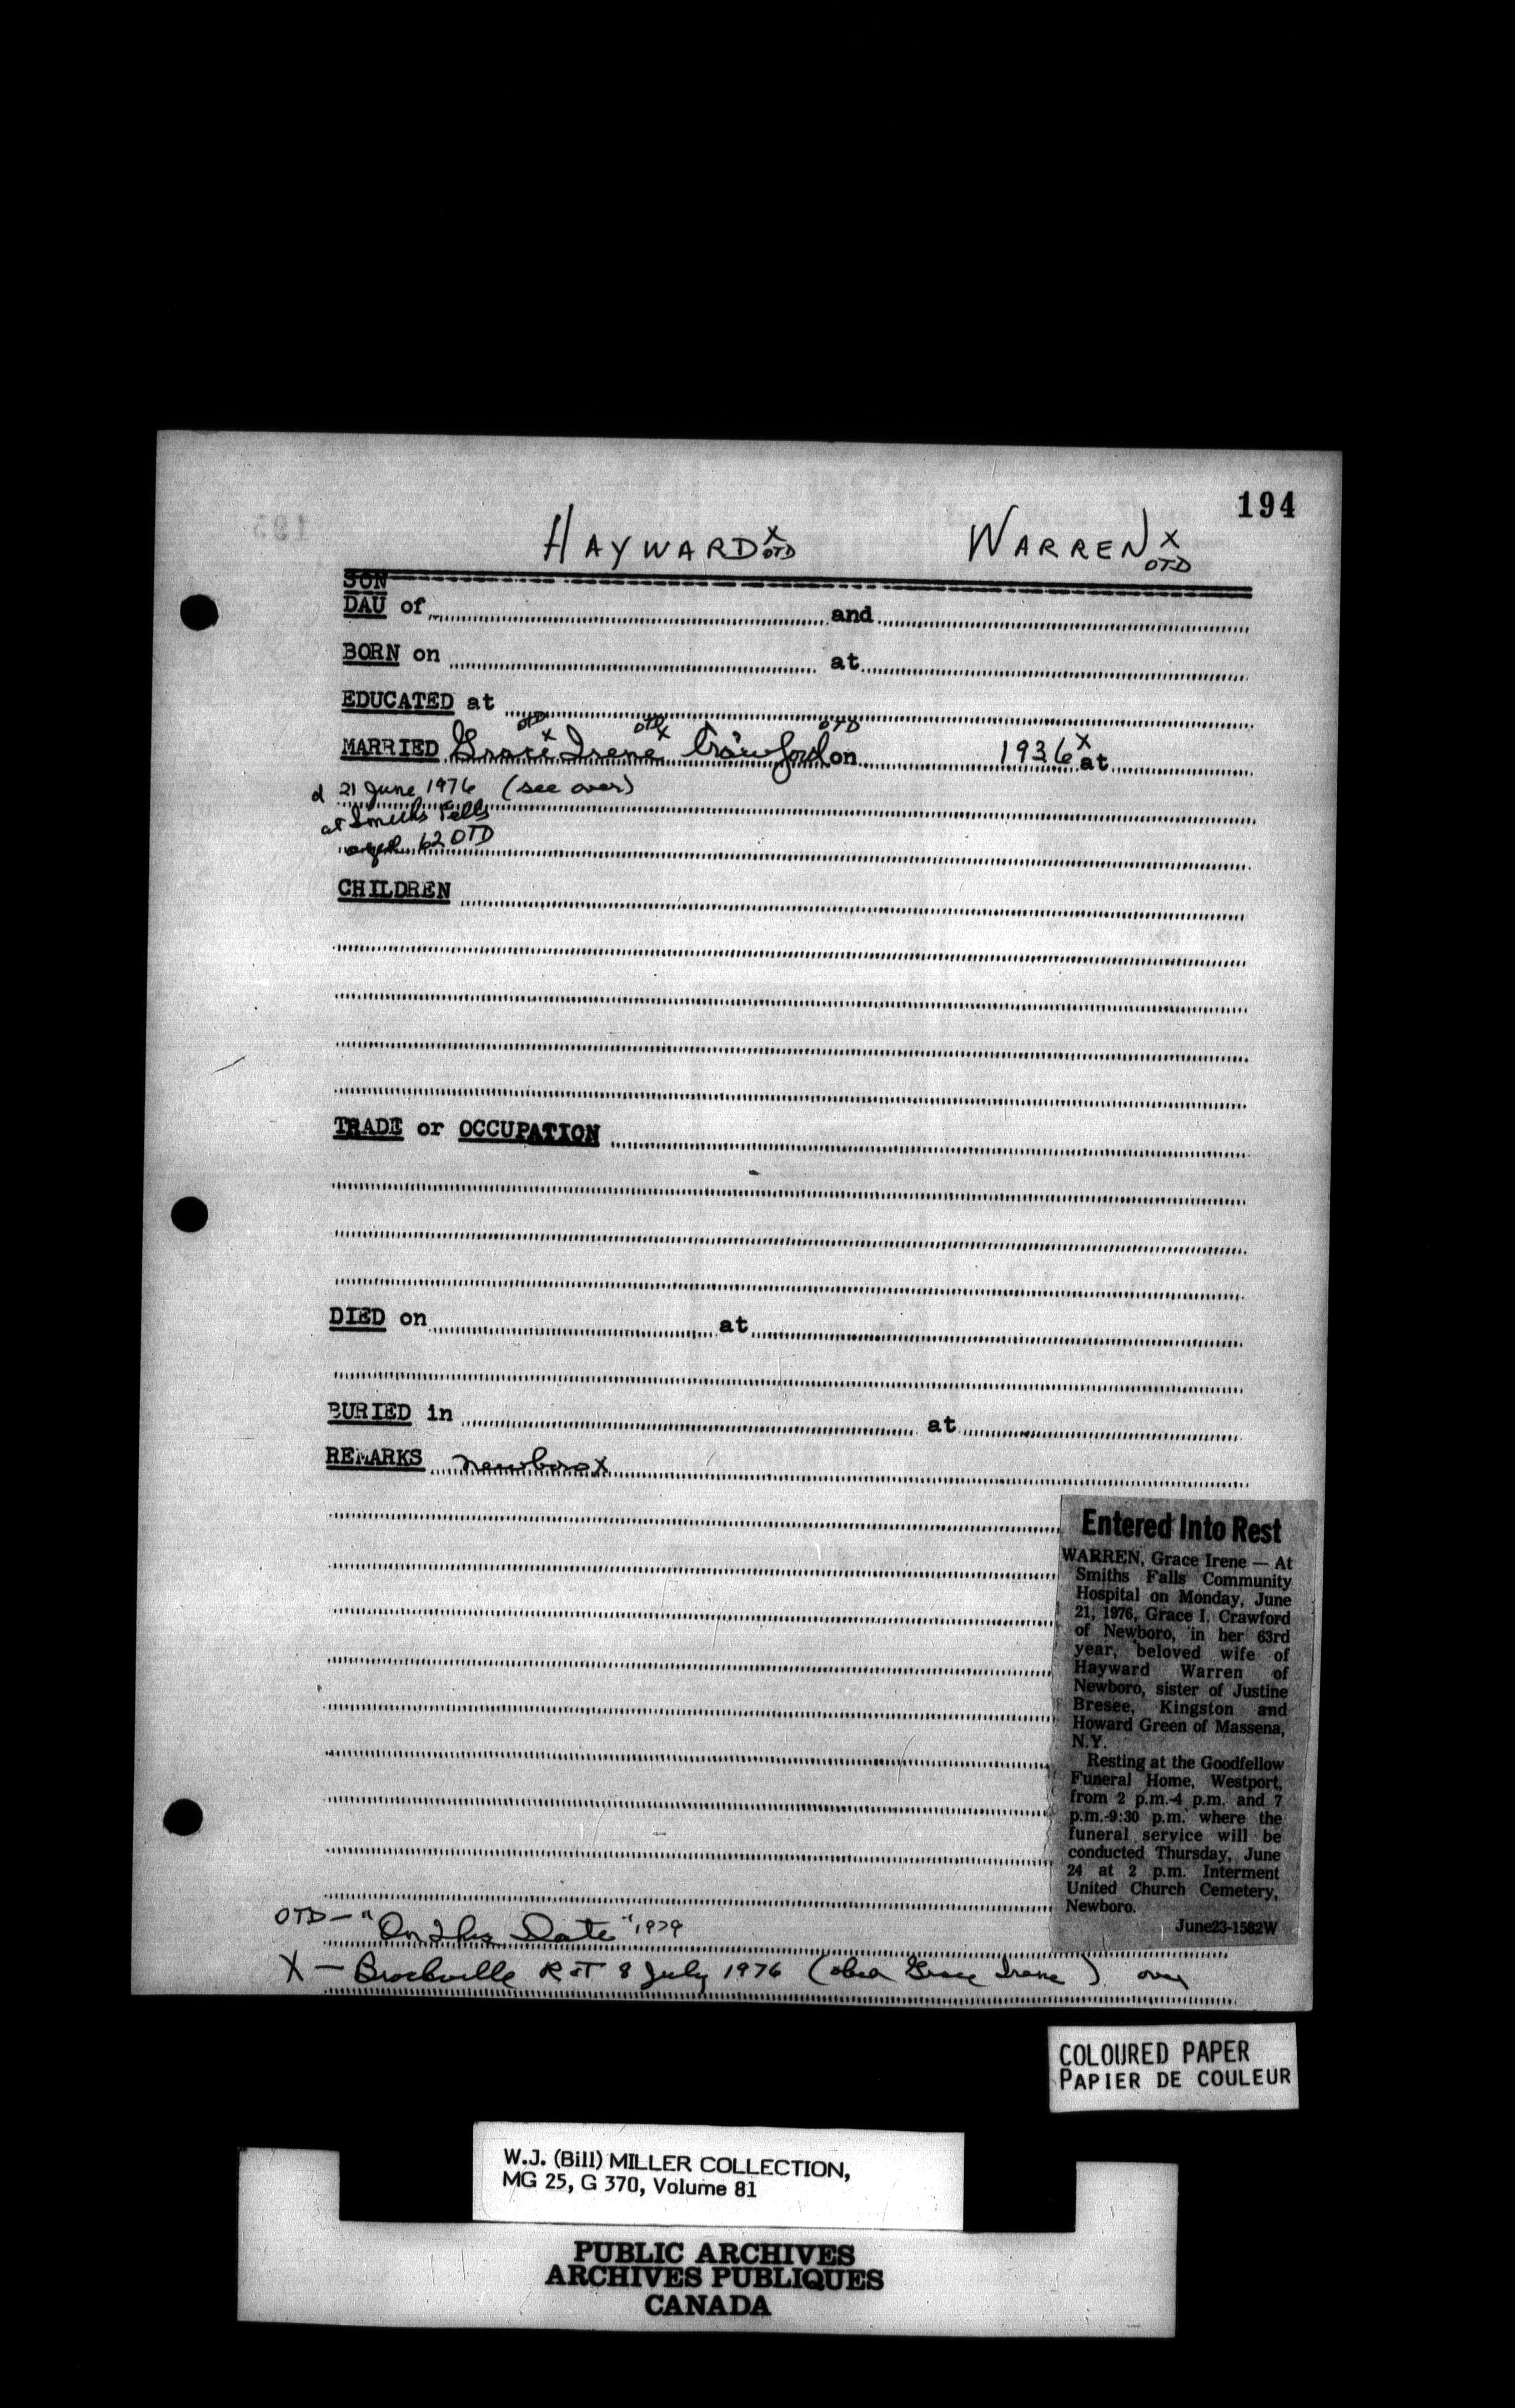 194
HAYWARD X OTD WARREN X OTD
SON
DAU of and
BORN on at
EDUCATED at
OTD X OTD X OTD
MARRIED Grace Irene Crawford on 1936 X at
d 21 June 1976 (see over)
at Smiths Falls
aged 62 OTD
CHILDREN
TRADE or OCCUPATION
DIED on at
BURIED in at
REMARKS Newboro X
Entered Into Rest
WARREN, Grace Irene — At
Smiths Falls Community
Hospital on Monday, June
21, 1976, Grace I. Crawford
of Newboro, in her 63rd
year, beloved wife of
Hayward Warren of
Newboro, sister of Justine
Bresee, Kingston and
Howard Green of Massena,
N.Y.
Resting at the Goodfellow
Funeral Home, Westport,
from 2 p.m.-4 p.m. and 7
p.m.-9:30 p.m. where the
funeral service will be
conducted Thursday, June
24 at 2 p.m. Interment
United Church Cemetery,
Newboro.
June23-1582W
OTD — "On This Date" 1979
X — Brockville R &T 8 July 1976 (obit Grace Irene) over
COLOURED PAPER
PAPIER DE COULEUR
W.J. (Bill) MILLER COLLECTION,
MG 25, G 370, Volume 81
PUBLIC ARCHIVES
ARCHIVES PUBLIQUES
CANADA